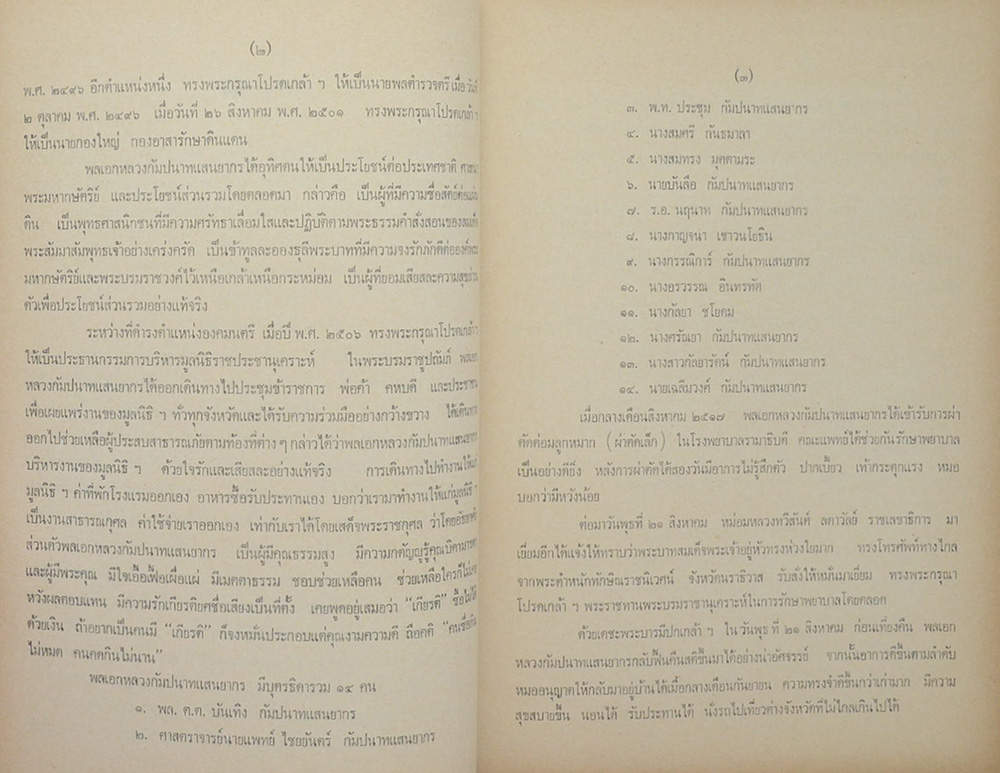 (๒)
พ.ศ. ๒๔๙๖ อีกตำแหน่งหนึ่ง ทรงพระกรุณาโปรดเกล้า ฯ ให้เป็นนายพลตำรวจตรี เมื่อวันที่
๒ ตุลาคม พ.ศ. ๒๔๙๖ เมื่อวันที่ ๒๖ สิงหาคม พ.ศ. ๒๕๐๑ ทรงพระกรุณาโปรดเกล้า ฯ
ให้เป็นนายกองใหญ่ กองอาสารักษาดินแดน
พลเอกหลวงกัมปนาทแสนยากรได้อุทิศตนให้เป็นประโยชน์ต่อประเทศชาติ ศาสนา
พระมหากษัตริย์ และประโยชน์ส่วนรวมโดยตลอดมา กล่าวคือ เป็นผู้ที่มีความซื่อสัตย์ต่อแผ่น
ดิน เป็นพุทธศาสนิกชนที่มีความศรัทธาเลื่อมใสและปฏิบัติตามพระธรรมคำสั่งสอนของสมเด็จ
พระสัมมาสัมพุทธเจ้าอย่างเคร่งครัด เป็นข้าทูลละอองธุลีพระบาทที่มีความจงรักภักดีต่อองค์พระ
มหากษัตริย์และพระบรมราชวงศ์ไว้เหนือเกล้าเหนือกระหม่อม เป็นผู้ที่ยอมเสียสละความสุขส่วน
ตัวเพื่อประโยชน์ส่วนรวมอย่างแท้จริง
ระหว่างที่ดำรงตำแหน่งองคมนตรี เมื่อปี พ.ศ. ๒๕๐๖ ทรงพระกรุณาโปรดเกล้าฯ
ให้เป็นประธานกรรมการบริหารมูลนิธิราชประชานุเคราะห์ ในพระบรมราชูปถัมภ์ พลเอก
หลวงกัมปนาทแสนยากรได้ออกเดินทางไปประชุมข้าราชการ พ่อค้า คหบดี และประชาชน
เพื่อเผยแพร่งานของมูลนิธิ ฯ ทั่วทุกจังหวัดและได้รับความร่วมมืออย่างกว้างขวาง ได้เดินทาง
ออกไปช่วยเหลือผู้ประสบสาธารณภัยตามท้องที่ต่าง ๆ กล่าวได้ว่าพลเอกหลวงกัมปนาทแสนยากร
บริหารงานของมูลนิธิ ฯ ด้วยใจรักและเสียสละอย่างแท้จริง การเดินทางไปทำงานให้แก่
มูลนิธิ ฯ ค่าที่พักโรงแรมออกเอง อาหารซื้อรับประทานเอง บอกว่าเรามาทำงานให้แก่มูลนิธิ ฯ
เป็นงานสาธารณกุศล ค่าใช้จ่ายเราออกเอง เท่ากับเราได้โดยเสด็จพระราชกุศล ว่าโดยอัธยาศัย
ส่วนตัวพลเอกหลวงกัมปนาทแสนยากร เป็นผู้มีคุณธรรมสูง มีความกตัญญูรู้คุณบิดามารดา
และผู้มีพระคุณ มีใจเอื้อเฟื้อเผื่อแผ่ มีเมตตาธรรม ชอบช่วยเหลือคน ช่วยเหลือใครก็ไม่
หวังผลตอบแทน มีความรักเกียรติยศชื่อเสียงเป็นที่ตั้ง เคยพูดอยู่เสมอว่า “เกียรติ” ซื้อไม่ได้
ด้วยเงิน ถ้าอยากเป็นคนมี “เกียรติ” ก็จงหมั่นประกอบแต่คุณงามความดี ถือคติ “คนซื่อกิน
ไม่หมด คนคดกินไม่นาน”
พลเอกหลวงกัมปนาทแสนยากร มีบุตรธิดารวม ๑๔ คน
๑. พล. ต.ต. บันเทิง กัมปนาทแสนยากร
๒. ศาสตราจารย์นายแพทย์ ไชยยันตร์ กัมปนาทแสนยากร
(๓)
๓. พ.ท. ประชุม กัมปนาทแสนยากร
๔. นางสมศรี กันธมาลา
๕. นางสมทรง มุคตามระ
๖. นายบันลือ กัมปนาทแสนยากร
๗. ร.อ. นฤนาท กัมปนาทแสนยากร
๘. นางกาญจนา เชาวนโยธิน
๙. นางกรรณิการ์ กัมปนาทแสนยากร
๑๐. นางอรวรรณ อินทรทัต
๑๑. นางกัลยา ชโยดม
๑๒. นางศรัณยา กัมปนาทแสนยากร
๑๓. นางสาวกัลยารัตน์ กัมปนาทแสนยากร
๑๔. นายเฉลิมวงศ์ กัมปนาทแสนยากร
เมื่อกลางเดือนสิงหาคม ๒๕๑๗ พลเอกหลวงกัมปนาทแสนยากรได้เข้ารับการผ่า
ตัดต่อมลูกหมาก (ผ่าตัดเล็ก) ในโรงพยาบาลรามาธิบดี คณะแพทย์ได้ช่วยกันรักษาพยาบาล
เป็นอย่างดียิ่ง หลังการผ่าตัดได้สองวันมีอาการไม่รู้สึกตัว ปากเบี้ยว เท้ากระตุกแรง หมอ
บอกว่ามีหวังน้อย
ต่อมาวันพุธที่ ๒๑ สิงหาคม หม่อมหลวงทวีสันต์ ลดาวัลย์ ราชเลขาธิการ มา
เยี่ยมอีกได้แจ้งให้ทราบว่าพระบาทสมเด็จพระเจ้าอยู่หัวทรงห่วงใยมาก ทรงโทรศัพท์ทางไกล
จากพระตำหนักทักษิณราชนิเวศน์ จังหวัดนราธิวาส รับสั่งให้หมั่นมาเยี่ยม ทรงพระกรุณา
โปรดเกล้า ฯ พระราชทานพระบรมราชานุเคราะห์ในการรักษาพยาบาลโดยตลอด
ด้วยเดชะพระบารมีปกเกล้า ฯ ในวันพุธ ที่ ๒๑ สิงหาคม ก่อนเที่ยงคืน พลเอก
หลวงกัมปนาทแสนยากรกลับฟื้นคืนสติขึ้นมาได้อย่างน่าอัศจรรย์ จากนั้นอาการดีขึ้นตามลำดับ
หมออนุญาตให้กลับมาอยู่บ้านได้เมื่อกลางเดือนกันยายน ความทรงจำดีขึ้นกว่าเก่ามาก มีความ
สุขสบายขึ้น นอนได้ รับประทานได้ นั่งรถไปเที่ยวต่างจังหวัดที่ไม่ไกลเกินไปได้